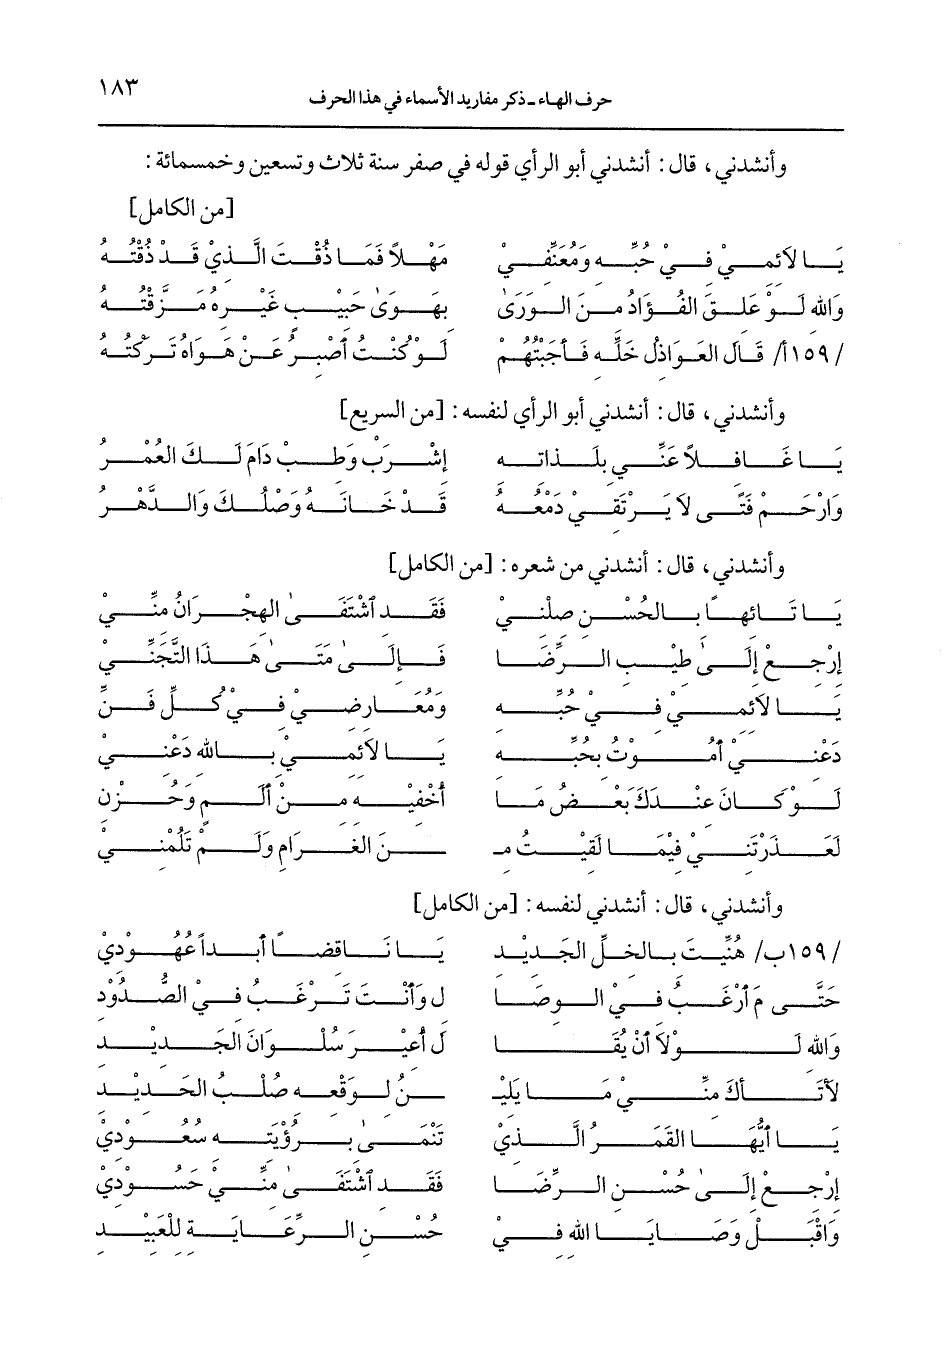 حرف الهاء ـ ذكر مفاريد الأسماء في هذا الحرف ١٨٣
وأنشدني، قال: أنشدني أبو الرأي قوله في صفر سنة ثلاث وتسعين وخمسمائة:
[من الكامل]
يَا لاَئِمِيْ فِيْ حُبِّهِ وَمُعَنِّفِيْ مَهْلاً فَمَا ذُقْتَ الَّذِيْ قَدْ ذُقْتُهُ
وَاللهِ لَوْ عَلِقَ الفُؤَادُ مِنَ الوَرَىٰ بِهَوَىٰ حَبِيْبٍ غَيْرِهِ مَزَّقْتُهُ
/١٥٩أ/ قَالَ العَوَاذِلُ خَلِّهِ فَأَجَبْتُهُمْ لَوْ كُنْتُ أَصْبِرُ عَنْ هَوَاهُ تَرَكْتُهُ
وأنشدني، قال: أنشدني أبو الرأي لنفسه: [من السريع]
يَا غَافِلاً عَنِّي بِلَذاتِهِ إِشْرَبْ وَطِبْ دَامَ لَكَ العُمْرُ
وَارْحَمْ فَتًى لاَ يَرْتَقِيْ دَمْعُهُ قَدْ خَانَهُ وَصْلُكَ وَالدَّهْرُ
وأنشدني، قال: أنشدني من شعره: [من الكامل]
يَا تَائِهًا بِالحُسْنِ صِلْنِيْ فَقَدِ ٱشْتَفَىٰ الهِجْرَانُ مِنِّيْ
إِرْجِعْ إِلَىٰ طِيْبِ الرِّضَا فَإِلَىٰ مَتَىٰ هَذَا التَّجَنِّيْ
يَا لاَئِمِيْ فِيْ حُبِّهِ وَمُعَارِضِيْ فِيْ كُلِّ فَنِّ
دَعْنِيْ أَمُوْتُ بِحُبِّهِ يَا لاَئِمِيْ بِاللهِ دَعْنِيْ
لَوْ كَانَ عِنْدَكَ بَعْضُ مَا أُخْفِيْهِ مِنْ أَلَمٍ وَحُزْنِ
لَعَذَرْتَنِيْ فِيْمَا لَقِيْتُ مِـ ـنَ الغَرَامِ وَلَمْ تَلُمْنِيْ
وأنشدني، قال: أنشدني لنفسه: [من الكامل]
/١٥٩ب/ هُنِّيْتَ بِالخِلِّ الجَدِيْدِ يَا نَاقِضًا أَبَداً عُهُوْدِيْ
حَتَّى مَ أَرْغَبُ فِيْ الوِصَا لِ وَأَنْتَ تَرْغَبُ فِيْ الصُّدُوْدِ
وَاللهِ لَوْلاَ أَنْ يُقَا لَ أُعِيْرَ سُلْوَانَ الجَدِيْدِ
لأَتَاكَ مِنِّيْ مَا يَلِيْـ ـنُ لِوَقْعِهِ صُلْبُ الحَدِيْدِ
يَا أَيُّهَا القَمَرُ الَّذِيْ تَنْمَىٰ بِرُؤْيَتِهِ سُعُوْدِيْ
إِرْجِعْ إِلَىٰ حُسْنِ الرِّضَا فَقَدِ ٱشْتَفَىٰ مِنِّيْ حَسُوْدِيْ
وَاقْبَلْ وَصَايَا اللهِ فِيْ حُسْنِ الرِّعَايَةِ لِلْعَبِيْدِ